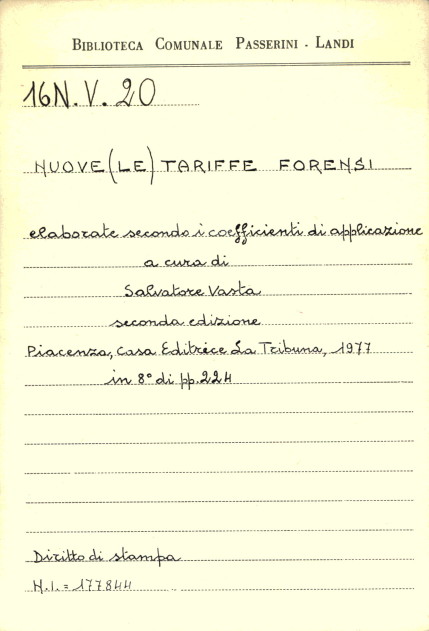 BIBLIOTECA COMUNALE PASSERINI - LANDI
16N.V.20
NUOVE(LE) TARIFFE FORENSI
elaborate secondo i coefficienti di applicazione
a cura di
Salvatore Vasta
seconda edizione
Piacenza, Casa Editrice La Tribuna, 1977
in 8° di pp. 224
Diritto di stampa
N.I. = 177844